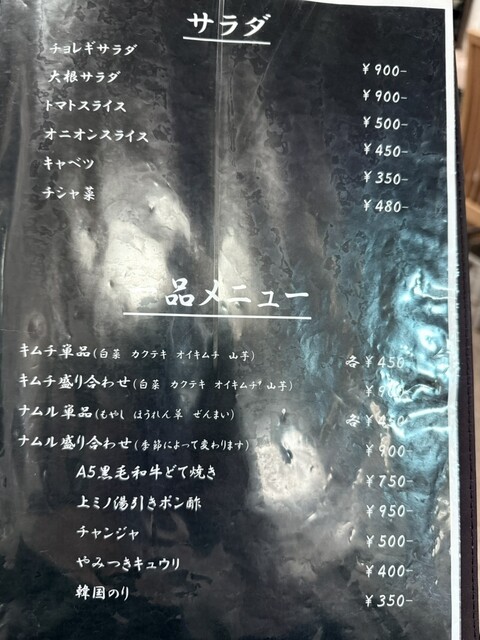 サラダ
チョレギサラダ ¥900-
大根サラダ ¥900-
トマトスライス ¥500-
オニオンスライス ¥450-
キャベツ ¥350-
チシャ菜 ¥480-
一品メニュー
キムチ単品(白菜 カクテキ オイキムチ 山芋) 各¥450
キムチ盛り合わせ(白菜 カクテキ オイキムチ 山芋)
ナムル単品(もやし ほうれん草 ぜんまい) 各¥450
ナムル盛り合わせ(季節によって変わります) ¥900-
A5黒毛和牛どて焼き ¥750-
上ミノ湯引きポン酢 ¥950-
チャンジャ ¥500-
やみつきキュウリ ¥400-
韓国のり ¥350-